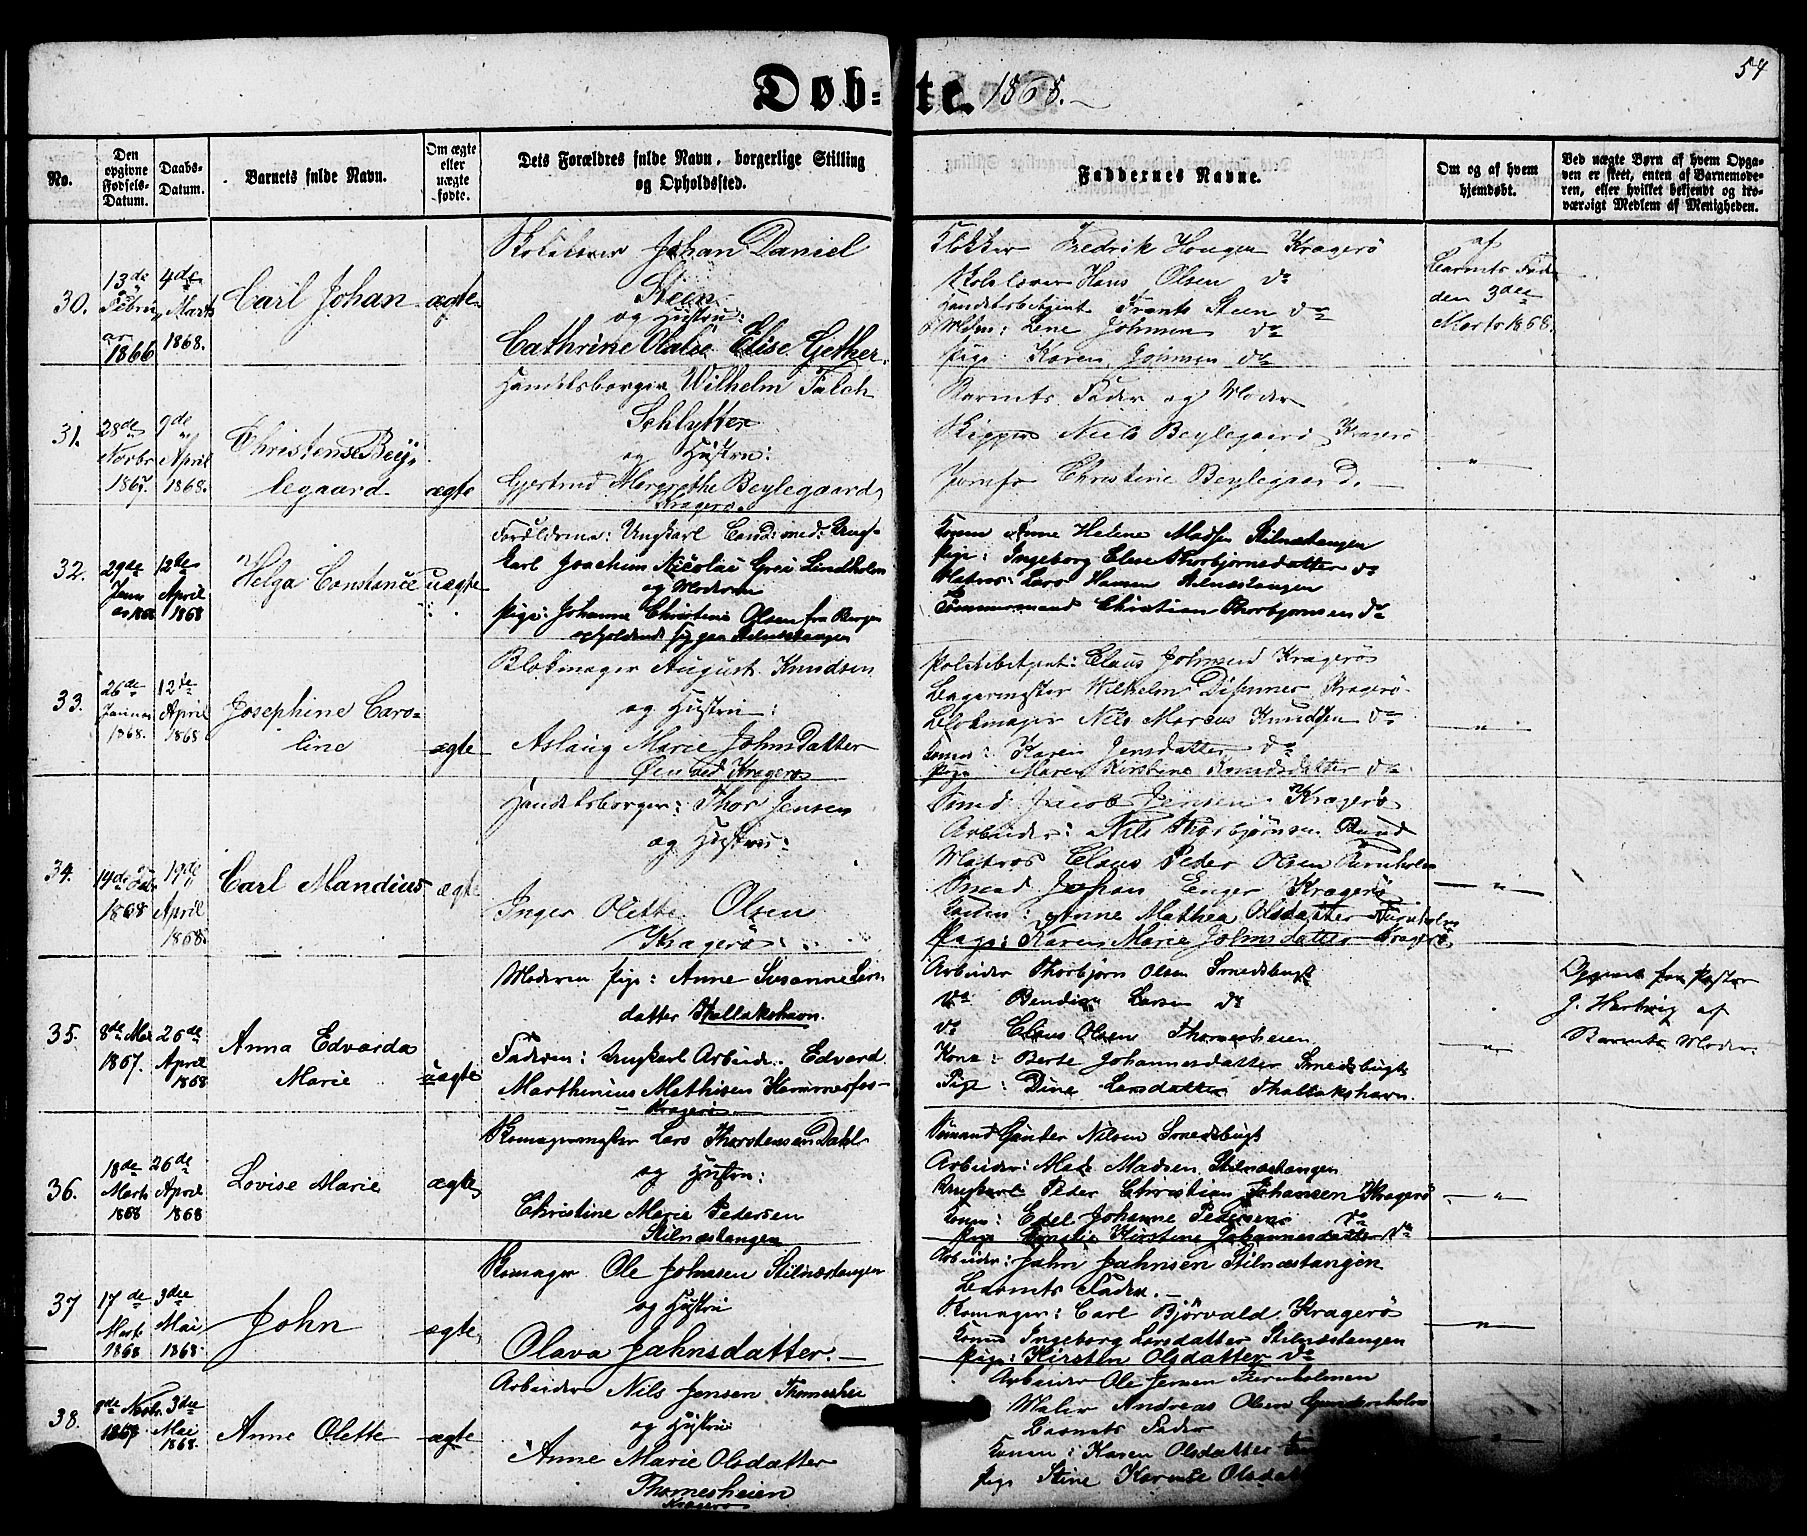 54
Døb-te. 1868.
No.
Den opgivne Fødsels-Datum.
Daabs-Datum.
Barnets fulde Navn.
Om ægte eller uægte fødte.
Dets Forældres fulde Navn, borgerlige Stilling og Opholdssted.
Faddernes Navne.
Om og af hvem hjemdøbt.
Ved uægte Børn af hvem Opgaven er skeet, enten af Barnemoderen, eller hvilket bekjendt og troværdigt Medlem af Menigheden.
30.
13de Februar 1866
4de Marts 1868.
Carl Johan
ægte
Skolelærer Johan Daniel
Steen
og Hustru:
Cathrine Olalie Elise Gether.
Klokker Fredrik Hougen Kragerö
Skolelærer Hans Olsen do
Handelsbetjent Frants Steen do
Lene Johnsen do
Pige Karen Johnsen do
af
Barnets Fader
den 3die
Marts 1868.
31.
28de Novbr 1867.
9de April 1868.
Christense Beyi-
legaard.
ægte
Handelsborger Wilhelm Falch
Schlytter
og Hustru:
Gjertrud Margrethe Beylegaard,
Kragerø.
Barnets Fader og Moder
Skipper Niels Beylegaard Kragerö
Jomfr Christine Beylegaard.
32.
29de Januar 1868
12te April 1868
Helga Constance
uægte
Forældrene: Ungkarl Cand: med: Ung-
karl Joachim Nicolai Grei Lindholm
og Moderen
Pige: Johanne Christine Olsen fra Bergen
opholdende sig paa Stilnæstangen
Konen Anne Helene Madsen Stilnæstangen
Pige: Ingeborg Elise Thorbjørnsdatter do
Matros: Lars Hansen Stilnæstangen
Tømmermand Christian Thorbjørnsen do
33.
26de Januar 1868.
12te April 1868
Josephine Caro-
line
ægte
Blokmager August Knudsen
og Hustru:
Aslaug Marie Johnsdatter
Øen ved Kragerø
Politibetjent: Claus Johnsen Kragerö
Bagermester Wilhelm Kragerö.
Blokmager Nils Marcus Knudsen do
Konen: Karen Jensdatter do
Pige Maren Kirstine Knudsdatter do.
34.
19de Febr 1868
19de April 1868.
Carl Mandius
ægte
Handelsborger: Thor Jensen
og Hustru:
Inger Olette Olsen
Kragerö.
Smed Jacob Jensen Kragerö
Arbeider: Nils Thorbjørnsen
Matros Claus Peder Olsen Furuholm
Smed Johan Enger Kragerö
Konen: Anne Mathea Olsdatter Furuholm
Pige: Karen Marie Johnsdatter Kragerö
35.
8de Mai 1867.
26de April 1868
Anna Edvarda
Marie
uægte
Moderen Pige: Anne Susanne Lars-
datter Thallakshavn.
Faderen: Ungkarl Arbeider Edvard
Marthenius Mathisen Hammerfos-
Kragerö
Arbeider Thorbjørn Olsen Smedsbugt
do Bendix Larsen do
do Claus Olsen Thomesheien
Kone: Berte Johannesdatter Smedsbugt
Pige: Dine Larsdatter Thallakshavn.
Opgivet for Pastor
J. Hartvig af
Barnets Moder.
36.
18de Marts 1868
26de April 1868
Lovise Marie
ægte
Skomagermester Lars Thorstensen Dahl
og Hustru:
Christine Marie Pedersen
Stilnæstangen
Sömand Gunder Nilsen Smedsbugt
Arbeider: Mads Madsen Stilnæstangen
Ungkarl Peder Christian Johansen Kragerö
Konen: Edel Johanne Pedersen do
Pige Emelie Kirstine Johannesdatter do
37
17de Marts 1868
3die Mai 1868.
John
ægte
Skomager Ole Johnsen Stilnæstangen
og Hustru
Olava Jahnsdatter.
Arbeider: Jahn Jahnsen Stilnæstangen
Barnets Fader.
Skomager: Carl Björvald Kragerö
Konen Ingeborg Larsdatter Stilnæstangen
Pige: Kirsten Olsdatter do
38.
Novbr. 1867
3die Mai 1868.
Anne Olette
ægte
Arbeider Nils Jensen Thomeshei
og Hustru
Anne Marie Olsdatter
Thomesheien
Kragerö
Arbeider Ole Jensen Furuholmen
Maler Andreas Olsen Gundersholm
Barnets Fader
Konen: Karen Olsdatter
Pige Stine Karine Olsdat